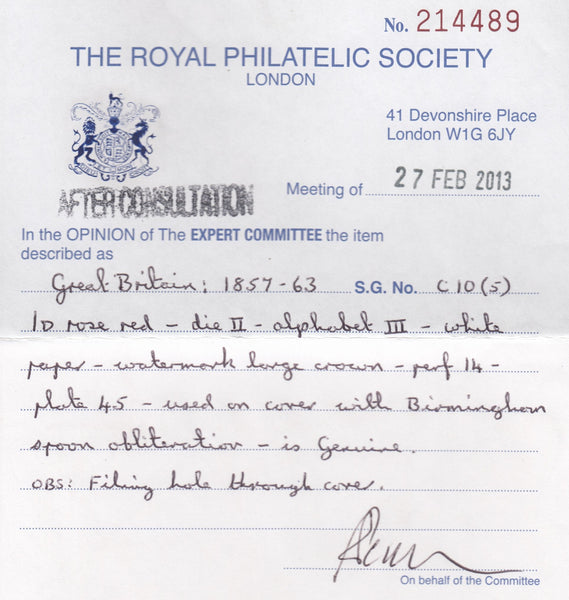 No. 214489
THE ROYAL PHILATELIC SOCIETY
LONDON
41 Devonshire Place
London W1G 6JY
AFTER CONSULTATION
Meeting of 27 FEB 2013
In the OPINION of The EXPERT COMMITTEE the item
described as
Great Britain: 1857-63 S.G. No. C10(5)
1D rose red - die II - alphabet III - white
paper - watermark large crown - perf 14 -
plate 45 - used on cover with Birmingham
spoon obliteration - is Genuine.
OBS: Filing hole through cover.
On behalf of the Committee